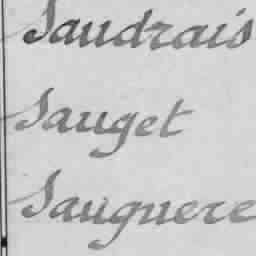 Saudrais
Sauget
Sauguere